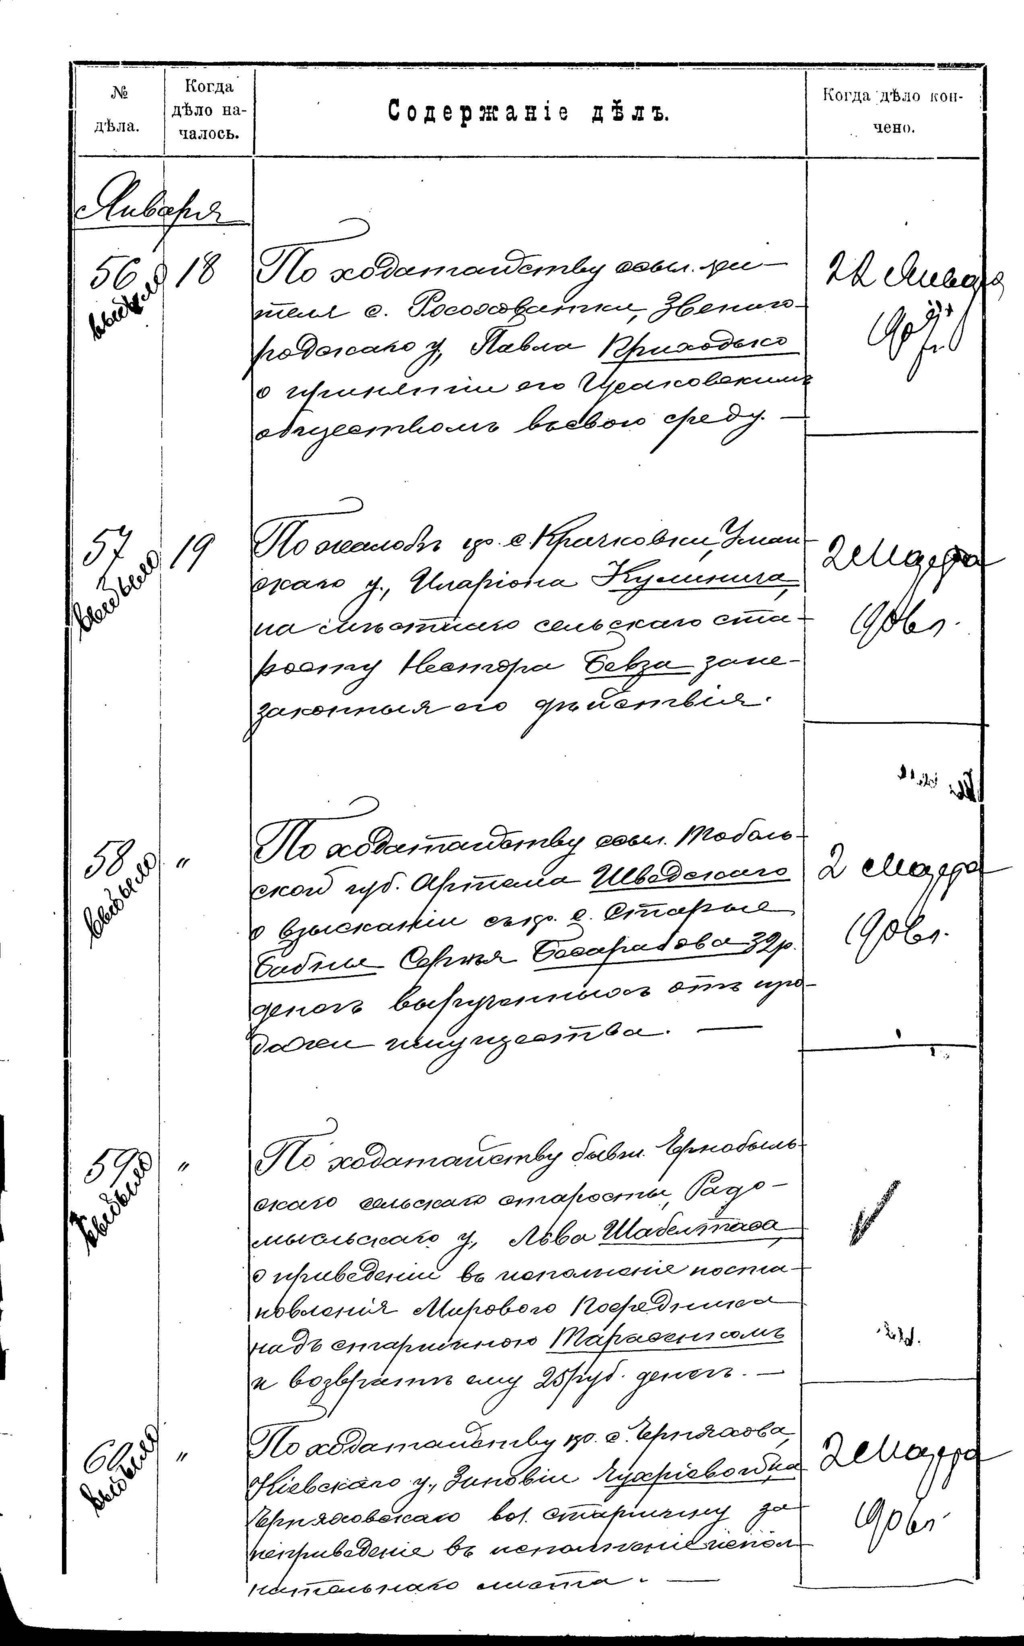 № дѣла.
Когда дѣло на-
чалось.
Содержаніе дѣлъ.
Когда дѣло кон-
чено.
Января
56 18
выбыло
По ходатайству ссыл. жи-
теля с. Россоховатки, Звениго-
родскаго у, Павла Приходько
о принятіи его Русаковскимъ
обществомъ въ свою среду. —
22 Января
57 19
выбыло
По жалобѣ кр. с. Крачковки, Уман-
скаго у., Иларіона Кулинича,
на мѣстнаго сельскаго ста-
росту Нестора Бевза за не-
законныя его дѣйствія.
2 Марта
1906 г.
58 "
выбыло
По ходатайству ссыл. Тоболь-
ской губ. Артема Шведскаго
о взысканіи съ кр. с. Старые
Бабны Сергѣя Бесарабова 32 р.
денегъ вырученныхъ отъ про-
дажи имущества. —
2 Марта
1906 г.
59 "
выбыло
По ходатайству бывш. Чернобыль-
скаго сельскаго старосты, Радо-
мысльскаго у, Льва
о приведеніи въ исполненіе поста-
новленія Мирового Посредника
надъ старшиною Тарасенкомъ
и возвратѣ ему 25 руб. денегъ. —
60 "
выбыло
По ходатайству кр. с. Черняхова,
Кіевскаго у., Зиновіи на
Черняховскаго вол. старшину за
неприведеніе въ исполненіе испол-
нительнаго листа. —
2 Марта
1906 г.